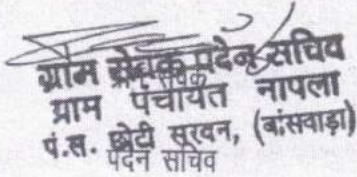 ग्राम सेवक पदेन सचिव
ग्राम पंचायत नापला
पं.स. छोटी सरवन, (बांसवाड़ा)
पदेन सचिव